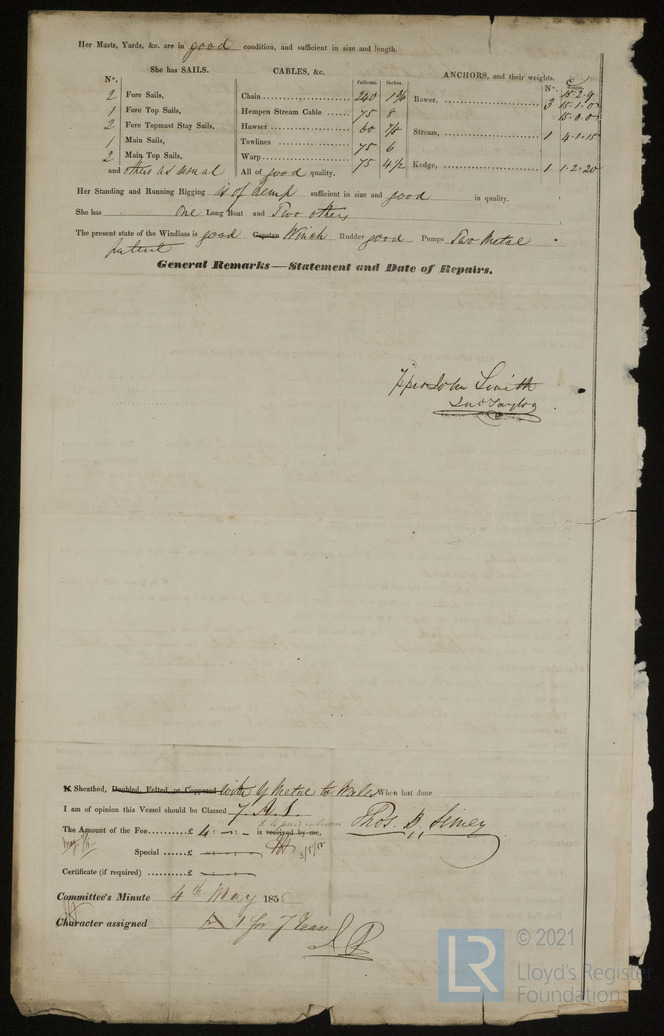 Her Masts, Yards, &c. are in good condition, and sufficient in size and length.
She has SAILS. CABLES, &c. ANCHORS, and their weights.
N°. Fathoms. Inches. N°. Weight.
2 Fore Sails,
1 Fore Top Sails,
2 Fore Topmast Stay Sails,
1 Main Sails,
2 Main Top Sails,
and others as usual
Chain 240 1 3/8
Hempen Stream Cable 75 8
Hawser 60 7/8
Towlines 75 6
Warp 75 4 1/2
All of good quality.
Bower, 3 15.2.9
15.1.0
15.0.0
Stream, 1 4.1.15
Kedge, 1 1.2.20
Her Standing and Running Rigging is of hemp sufficient in size and good in quality.
She has one Long Boat and Two others
The present state of the Windlass is good Capstan Winch Rudder good Pumps Two Metal
patent
General Remarks—Statement and Date of Repairs.
John Smith
Jno Taylor
Sheathed, Doubled, Felted, or Coppered with Y Metal to Wales When last done
I am of opinion this Vessel should be Classed 7. A. 1.
The Amount of the Fee £ 4 : - : - is received by me,
Thos. B. Simey
Special £
Certificate (if required) £
Committee's Minute 4th May 185
Character assigned A 1 for 7 Years
LR
© 2021
Lloyd's Register
Foundation